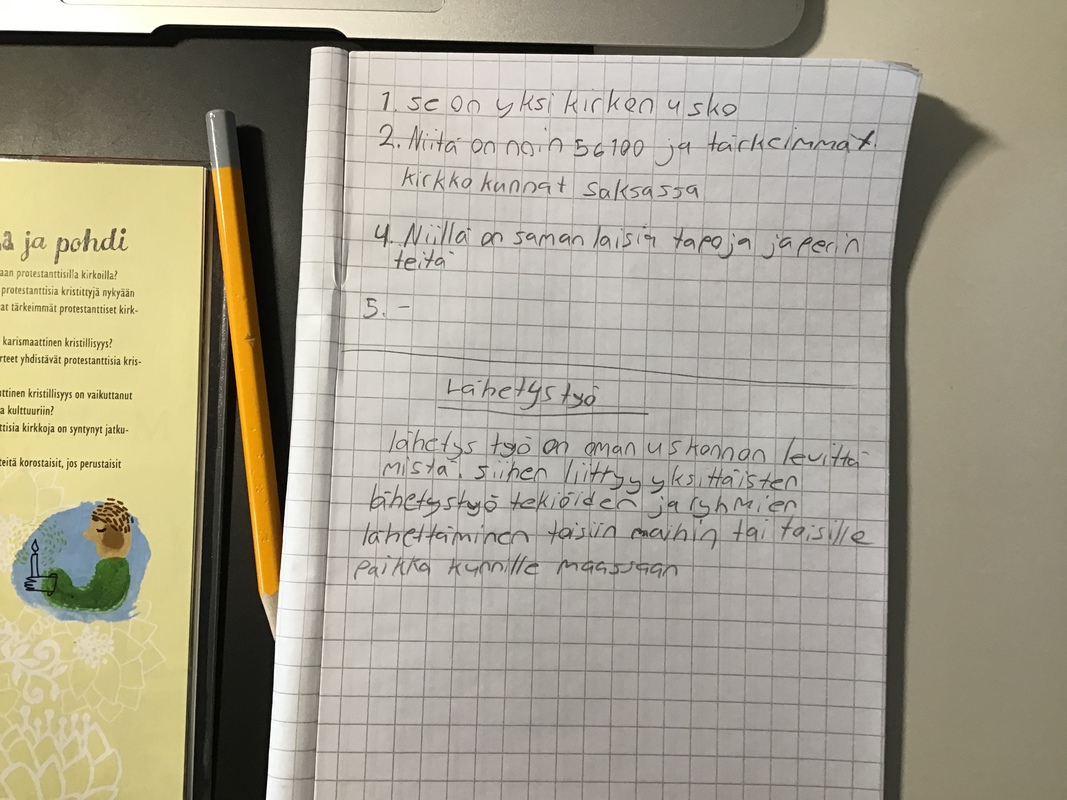 a ja pohdi
aan protestanttisilla kirkoilla?
protestanttisia kristittyjä nykyään
at tärkeimmät protestanttiset kirk-
karismaattinen kristillisyys?
rteet yhdistävät protestanttisia kris-
ttinen kristillisyys on vaikuttanut
a kulttuuriin?
ttisia kirkkoja on syntynyt jatku-
teitä korostaisit, jos perustaisit
1. se on yksi kirken usko
2. Niitä on noin 56100 ja tärkeimmät
kirkko kunnat saksassa
4. Niillä on saman laisia tapoja ja perin
teitä
5. -
Lähetystyö
lähetys työ on oman uskonnon levittä
mistä. siihen liittyy yksittäisten
lähetystyö tekiöiden ja ryhmien
lähettäminen toisiin maihin tai toisille
paikka kunnille maassaan